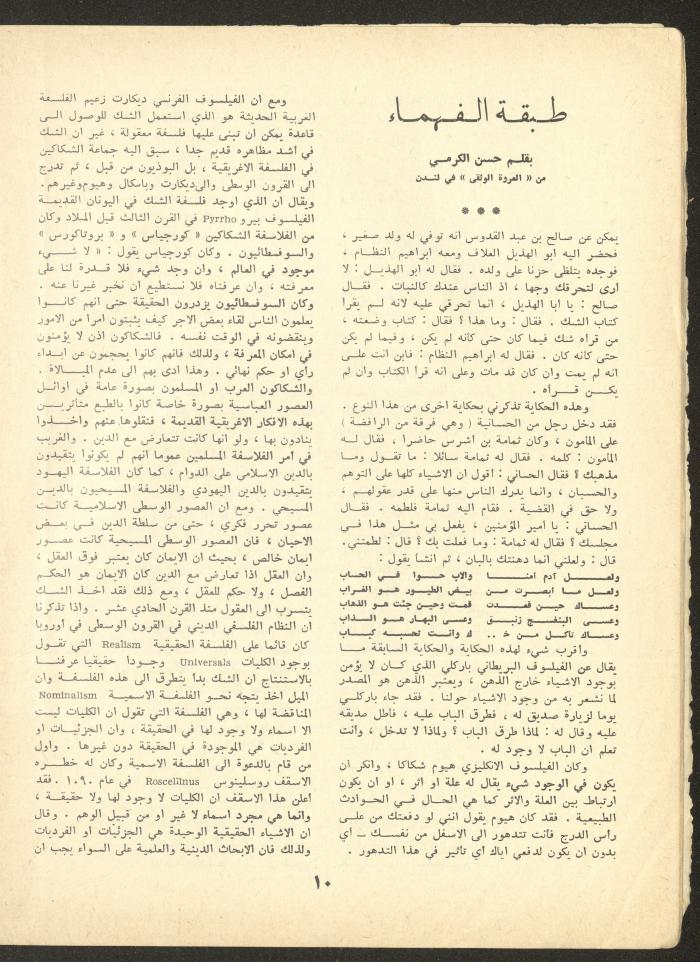 طبقة الفهماء
بقلم حسن الكرمي
من « العروة الوثقى » في لندن
* * *
يمكن عن صالح بن عبد القدوس انه توفي له ولد صغير ،
فحضر اليه ابو الهذيل العلاف ومعه ابراهيم النظام ،
فوجده يتلظى حزنا على ولده . فقال له ابو الهذيل : لا
ارى لتحرقك وجها ، اذ الناس عندك كالنبات . فقال
صالح : يا ابا الهذيل ، انما تحرقي عليه لانه لم يقرأ
كتاب الشك . فقال : وما هذا ؟ فقال : كتاب وضعته ،
من قرأه شك فيما كان حتى كأنه لم يكن ، وفيما لم يكن
حتى كأنه كان . فقال له ابراهيم النظام : فابن انت على
انه لم يمت وان كان قد مات وعلى انه قرأ الكتاب وان لم
يكن قرأه .
وهذه الحكاية تذكرني بحكاية اخرى من هذا النوع .
فقد دخل رجل من الحسانية ( وهي فرقة من الرافضة )
على المأمون ، وكان ثمامة بن اشرس حاضرا ، فقال له
المأمون : كلمه . فقال له ثمامة سائلا : ما تقول وما
مذهبك ؟ فقال الحساني : أقول ان الاشياء كلها على التوهم
والحسبان ، وانما يدرك الناس منها على قدر عقولهم ،
ولا حق في القضية . فقام اليه ثمامة فلطمه . فقال
الحساني : يا امير المؤمنين ، يفعل بي مثل هذا في
مجلسك ؟ فقال له ثمامة : وما فعلت بك ؟ قال : لطمتني.
قال : ولعلني انما دهنتك بالبان ، ثم انشأ يقول :
ولعل آدم امنا والاب حوا في الحساب
ولعل ما ابصرت من بيض الطيور هو الغراب
وعساك حين قعدت قمت وحين جئت هو الذهاب
وعسى البنفسج زنبق وعسى البهار هو السذاب
وعساك تأكل من خ .. ك وانت تحسبه كباب
وأقرب شيء لهذه الحكاية والحكاية السابقة ما
يقال عن الفيلسوف البريطاني باركلي الذي كان لا يؤمن
بوجود الاشياء خارج الذهن ، ويعتبر الذهن هو المصدر
لما نشعر به من وجود الاشياء حولنا . فقد جاء باركلي
يوما لزيارة صديق له ، فطرق الباب عليه ، فأطل صديقه
عليه وقال له : لماذا طرق الباب ؟ ولماذا لا تدخل ، وأنت
تعلم ان الباب لا وجود له .
وكان الفيلسوف الانكليزي هيوم شكاكا ، وانكر ان
يكون في الوجود شيء يقال له علة او اثر ، او ان يكون
ارتباط بين العلة والاثر كما هي الحال في الحوادث
الطبيعية . فقد كان هيوم يقول انني لو دفعتك من على
رأس الدرج فأنت تتدهور الى الاسفل من نفسك ــ أي
بدون ان يكون لدفعي اياك اي تأثير في هذا التدهور .
ومع ان الفيلسوف الفرنسي ديكارت زعيم الفلسفة
الغربية الحديثة هو الذي استعمل الشك للوصول الى
قاعدة يمكن ان تبنى عليها فلسفة معقولة ، غير ان الشك
في أشد مظاهره قديم جدا ، سبق اليه جماعة الشكاكين
في الفلسفة الاغريقية ، بل البوذيون من قبل ، ثم تدرج
الى القرون الوسطى والى ديكارت وباسكال وهيوم وغيرهم.
ويقال ان الذي اوجد فلسفة الشك في اليونان القديمة
الفيلسوف بيرو Pyrrho في القرن الثالث قبل الميلاد وكان
من الفلاسفة الشكاكين « كورجياس » و « بروتاكورس »
والسوفسطائيون . وكان كورجياس يقول : « لا شيء
موجود في العالم ، وان وجد شيء فلا قدرة لنا على
معرفته ، وان عرفناه فلا نستطيع ان نخبر غيرنا عنه .
وكان السوفسطائيون يزدرون الحقيقة حتى انهم كانوا
يعلمون الناس لقاء بعض الاجر كيف يثبتون امرا من الامور
وينقضونه في الوقت نفسه . فالشكاكون اذن لا يؤمنون
في امكان المعرفة ، ولذلك فانهم كانوا يحجمون عن ابداء
رأي او حكم نهائي . وهذا ادى بهم الى عدم المبالاة .
والشكاكون العرب او المسلمون بصورة عامة في اوائل
العصور العباسية بصورة خاصة كانوا بالطبع متأثرين
بهذه الافكار الاغريقية القديمة ، فنقلوها عنهم واخذوا
ينادون بها ، ولو انها كانت تتعارض مع الدين . والغريب
في أمر الفلاسفة المسلمين عموما انهم لم يكونوا يتقيدون
بالدين الاسلامي على الدوام ، كما كان الفلاسفة اليهود
يتقيدون بالدين اليهودي والفلاسفة المسيحيون بالدين
المسيحي . ومع ان العصور الوسطى الاسلامية كانت
عصور تحرر فكري ، حتى من سلطة الدين في بعض
الاحيان ، فان العصور الوسطى المسيحية كانت عصور
ايمان خالص ، بحيث ان الايمان كان يعتبر فوق العقل ،
وان العقل اذا تعارض مع الدين كان الايمان هو الحكم
الفصل ، ولا حكم للعقل ، ومع ذلك فقد اخذ الشك
يتسرب الى العقول منذ القرن الحادي عشر . واذا تذكرنا
أن النظام الفلسفي الديني في القرون الوسطى في أوروبا
كان قائما على الفلسفة الحقيقية Realism التي تقول
بوجود الكليات Universals وجودا حقيقيا عرفنا
بالاستنتاج ان الشك بدأ يتطرق الى هذه الفلسفة وان
الميل اخذ يتجه نحو الفلسفة الاسمية Nominalism
المناقضة لها ، وهي الفلسفة التي تقول ان الكليات ليست
الا اسماء ولا وجود لها في الحقيقة ، وان الجزئيات او
الفرديات هي الموجودة في الحقيقة دون غيرها . واول
من قام بالدعوة الى الفلسفة الاسمية وكان له خطره
الاسقف روسلينوس Roscellinus في عام ١٠٩٠ . فقد
أعلن هذا الاسقف ان الكليات لا وجود لها ولا حقيقة ،
وانما هي مجرد اسماء لا غير او من قبيل الوهم . وقال
ان الاشياء الحقيقية الوحيدة هي الجزئيات أو الفرديات
ولذلك فان الابحاث الدينية والعلمية على السواء يجب ان
١٠